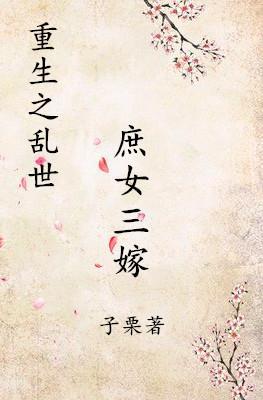 重生之乱世
庶女三嫁
子栗著